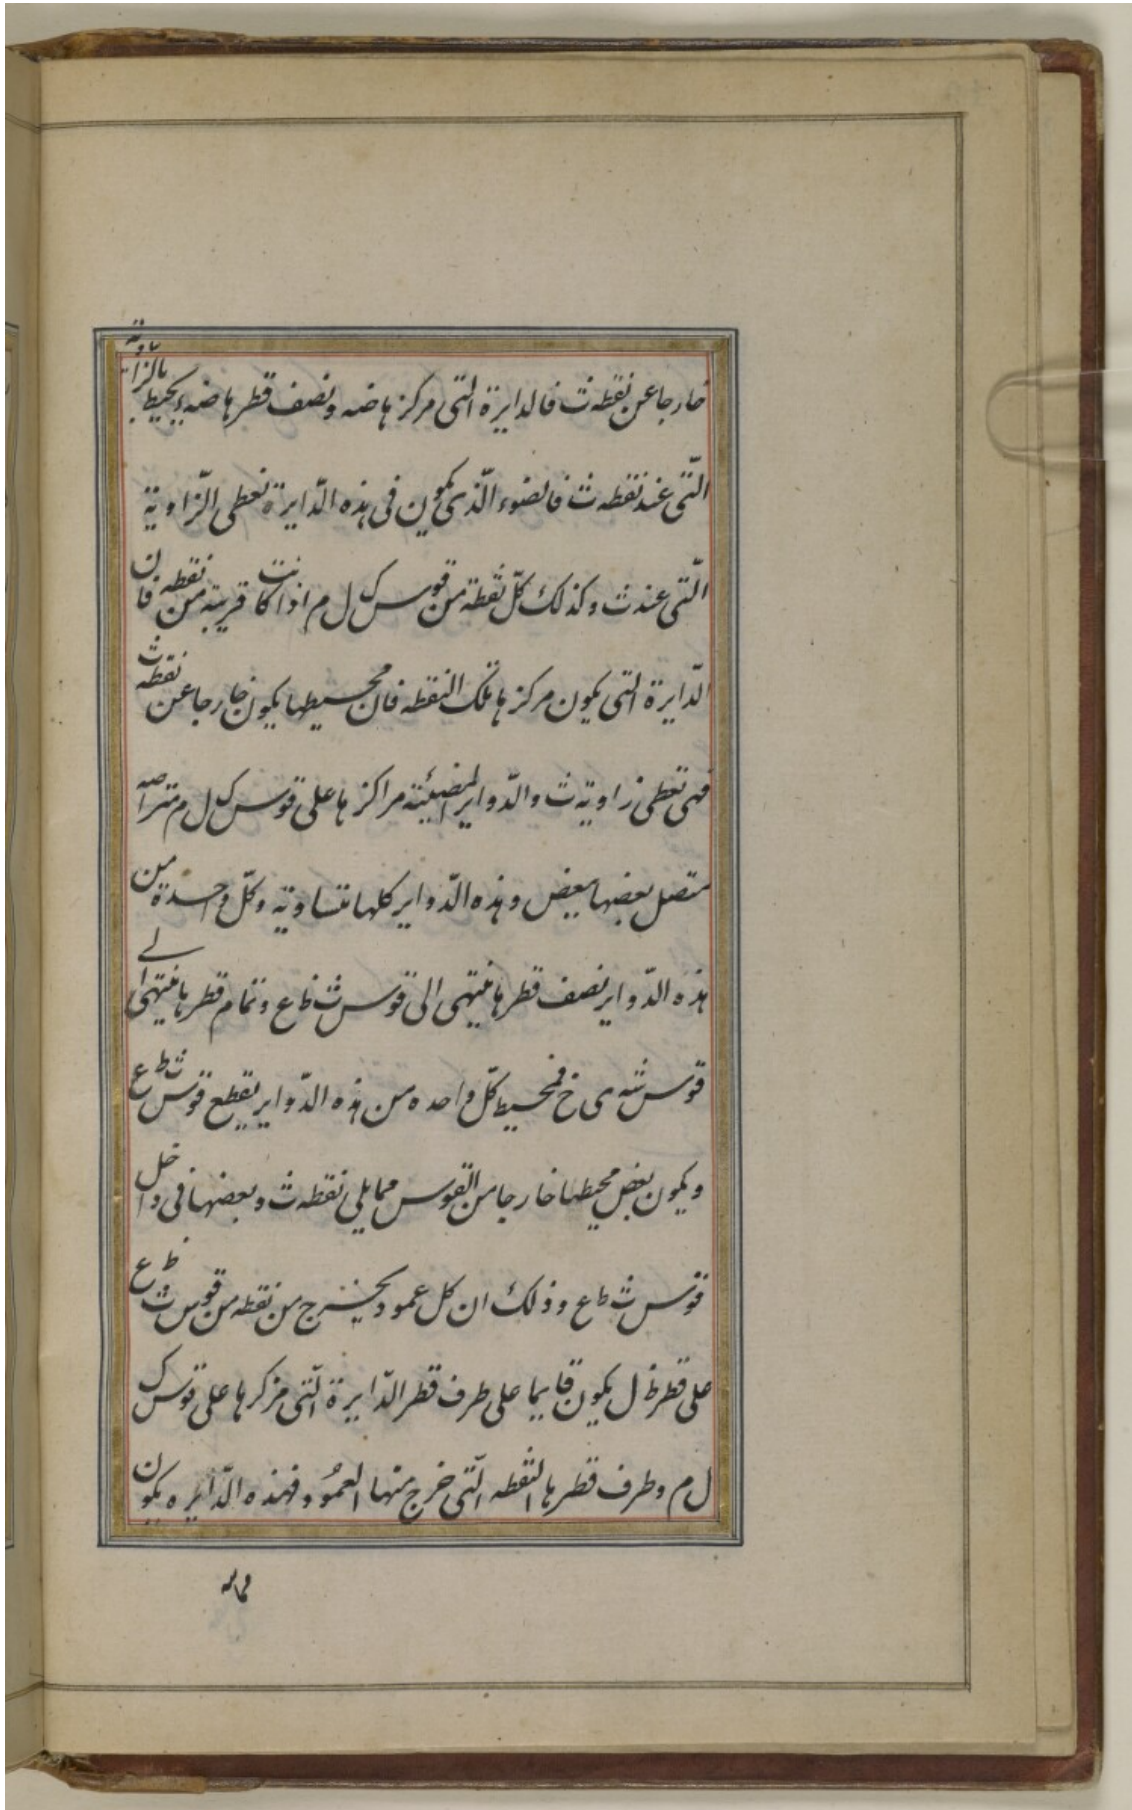 خارجا عن نقطه ث فالدايرة الّتى مركزها ضه ونصف قطرها ضه يحيط بالزّاوية
الّتى عند نقطه ث فالضوء الّذى يكون فى هذه الدّايرة تعطى الزّاوية
الّتى عند ث وكذلك كلّ نقطة من قوس ك ل م اذا كانت قريبة من نقطه فان
الدّايرة الّتى يكون مركزها تلك النقطه فان محيطها يكون خارجا عن نقطه ث
فهى تعطى زاوية ث والدّواير المضيئة مراكزها على قوس ك ل م متراصه
متصل بعضها ببعض وهذه الدّواير كلها متساوية وكلّ واحدة من
هذه الدّواير نصف قطرها ينتهى الى قوس ث ظ ع وتمام قطرها ينتهى الى
قوس شه ى خ فمحيط كلّ واحده من هذه الدّواير يقطع قوس ث ظ ع
ويكون بعض محيطها خارجا من القوس مما يلى نقطه ث وبعضها فى داخل
قوس ث ظ ع وذلك ان كل عمود يخرج من نقطه من قوس ث ظ ع
على قطر ظ ل يكون قايما على طرف قطر الدّايرة الّتى مركزها على قوس ك
ل م وطرف قطرها النقطه الّتى خرج منها العمود فهذه الدّايره يكون
مماسه